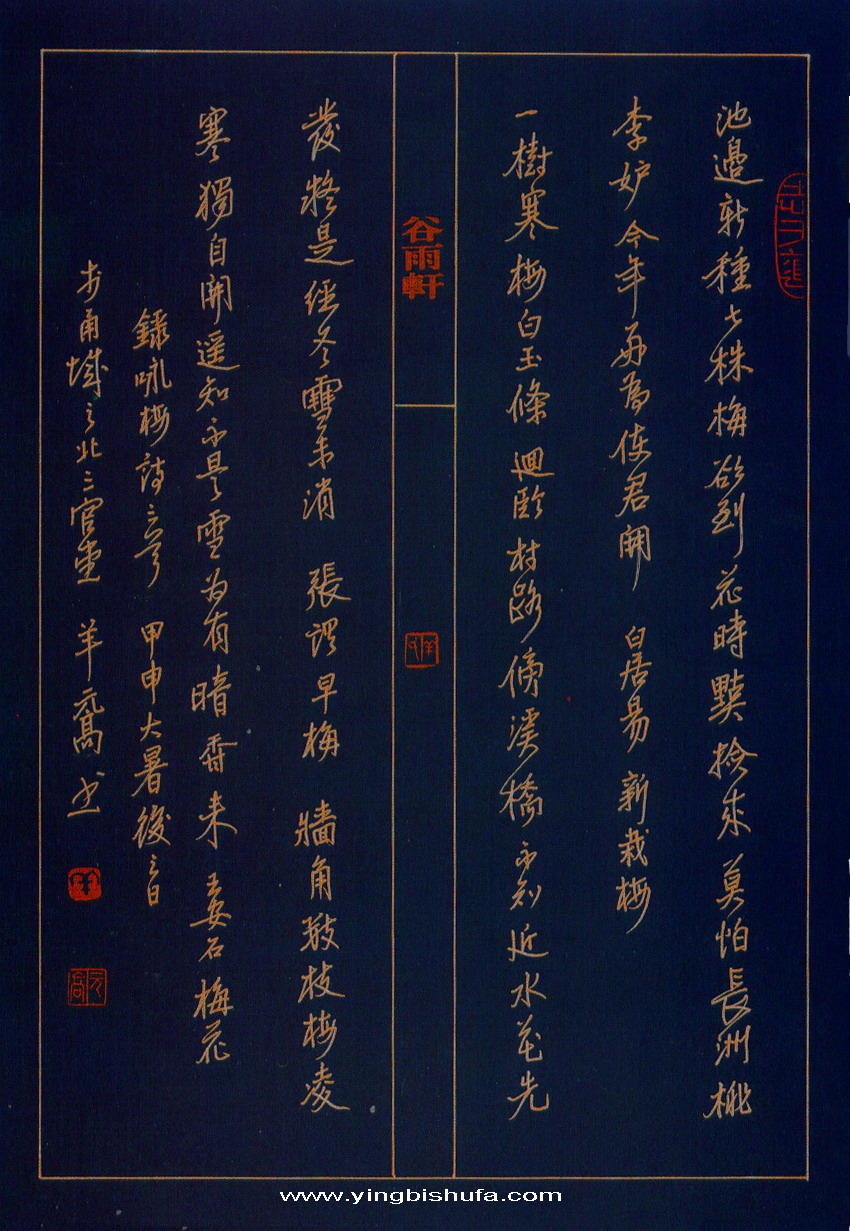 池邊新種七株梅欲到花時點檢來莫怕長洲桃
李妒今年好為使君開 白居易 新栽梅
一樹寒梅白玉條迴臨村路傍溪橋不知近水花先
谷雨軒
發疑是經冬雪未消 張謂 早梅 牆角數枝梅凌
寒獨自開遙知不是雪為有暗香來 王安石 梅花
錄咏梅詩三首 甲申大暑後三日
於甬城之北三官堂 羊元高书
www.yingbishufa.com